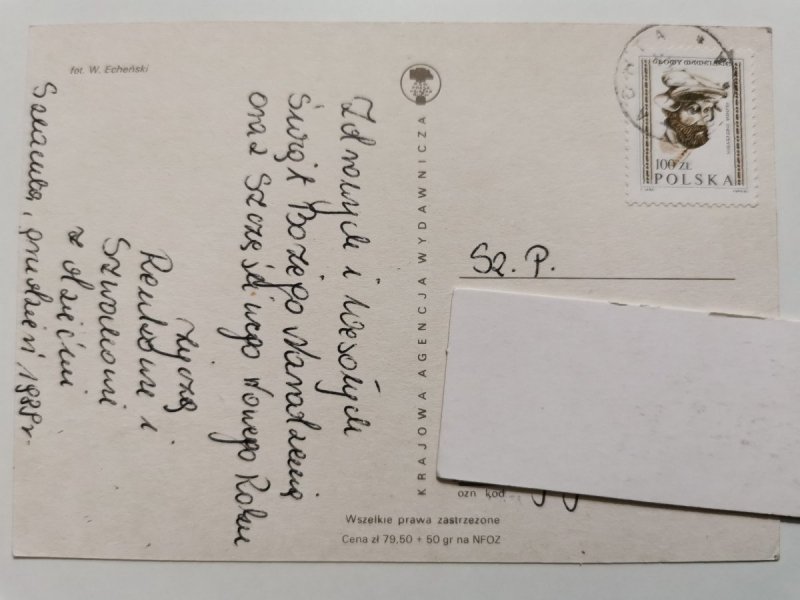 fot. W. Echeński
Zdrowych i Wesołych
Świąt Bożego Narodzenia
oraz Szczęśliwego Nowego Roku
życzą
i
z dziećmi
grudzień 1988r.
KRAJOWA AGENCJA WYDAWNICZA
GŁOWY WAWELSKIE
100 ZŁ
POLSKA
Sz. P.
ozn kod
Wszelkie prawa zastrzeżone
Cena zł 79,50 + 50 gr na NFOZ